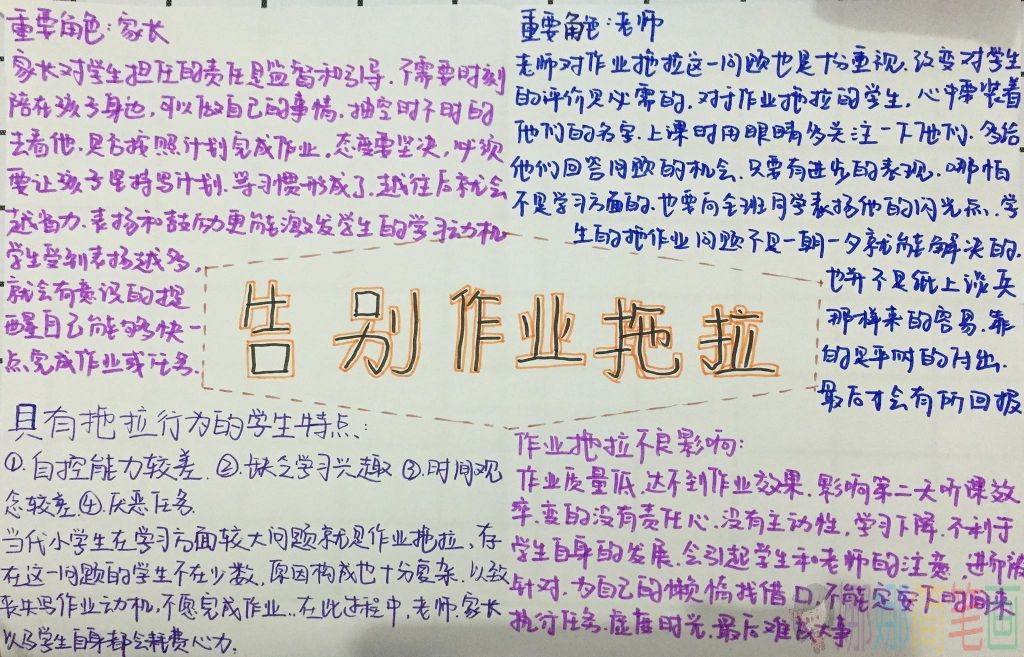 重要角色：家长
家长对学生担任的责任是监督和引导．不需要时刻
陪在孩子身边，可以做自己的事情．抽空时不时的
去看他．是否按照计划完成作业，态度要坚决，必须
要让孩子坚持写计划．学习惯形成了．越往后就会
越省力．表扬和鼓励更能激发学生的学习动机
学生受到表扬越多，
就会有意识的提
醒自己能够快一
点完成作业或任务．
重要角色：老师
老师对作业拖拉这一问题也是十分重视．改变对学生
的评价是必需的．对于作业拖拉的学生．心中要装着
他们的名字．上课时用眼睛多关注一下他们．多给
他们回答问题的机会．只要有进步的表现．哪怕
不是学习方面的．也要向全班同学表扬他的闪光点．学
生的拖作业问题不是一朝一夕就能解决的．
也并不是纸上谈兵
那样来的容易．靠
的是平时的付出．
最后才会有所回报
告别作业拖拉
具有拖拉行为的学生特点：
①．自控能力较差．②．缺乏学习兴趣③．时间观
念较差④．厌恶任务．
当代小学生在学习方面较大问题就是作业拖拉、存
在这一问题的学生不在少数．原因构成也十分复杂．以致
丧失写作业动机．不愿完成作业．．在此过程中．老师．家长
以及学生自身都会耗费心力．
作业拖拉不良影响：
作业质量低．达不到作业效果．影响第二天听课效
率．变的没有责任心．没有主动性，学习下降．不利于
学生自身的发展．会引起学生和老师的注意．进而被
针对．为自己的懒惰找借口．不能定安下时间来
执行任务．虚度时光．最后难成大事
娜娜有笔画